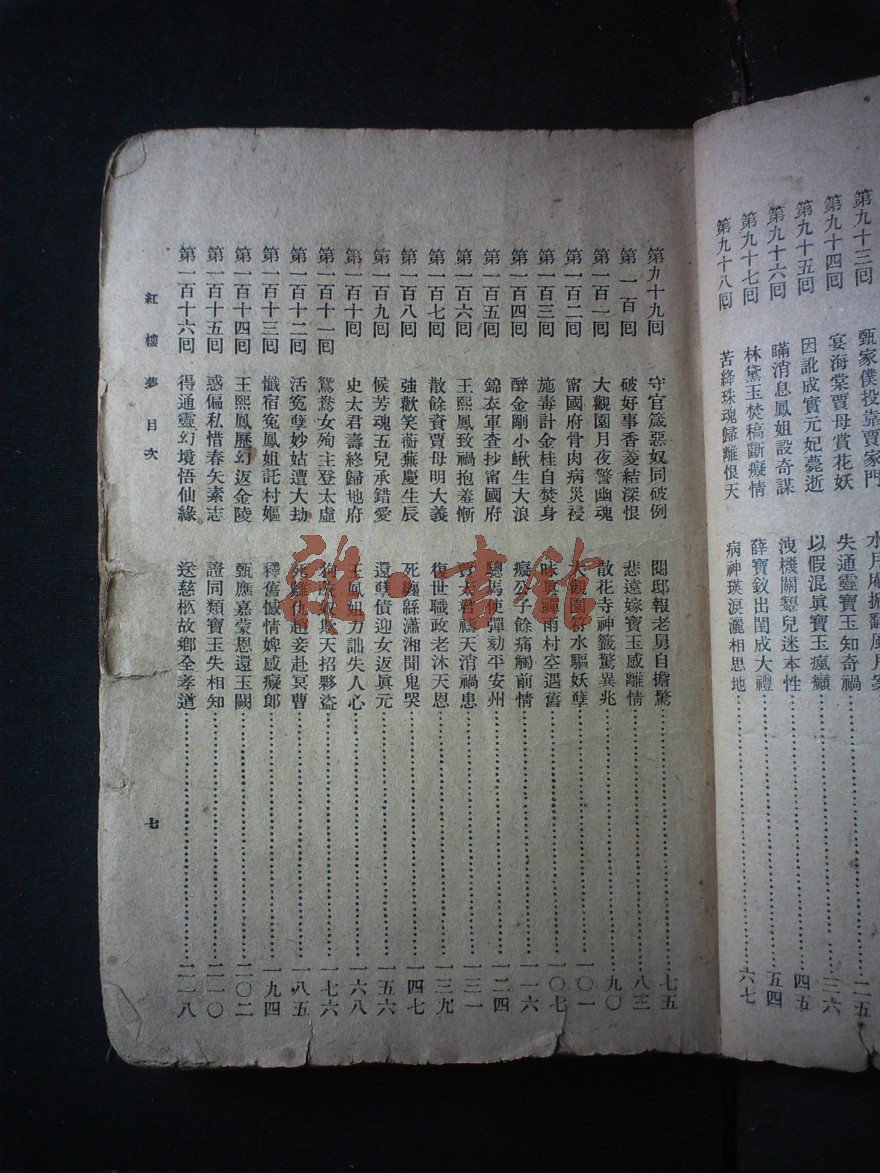 第九十三回 甄家僕投靠賈家門 水月庵掀翻風月案 二五
第九十四回 宴海棠賈母賞花妖 失通靈寶玉知奇禍 三六
第九十五回 因訛成實元妃薨逝 以假混眞寶玉瘋癲 四五
第九十六回 瞞消息鳳姐設奇謀 洩機關顰兒迷本性 五四
第九十七回 林黛玉焚稿斷癡情 薛寶釵出閨成大禮 六七
第九十八回 苦絳珠魂歸離恨天 病神瑛淚灑相思地
第九十九回 守官箴惡奴同破例 閱邸報老舅自擔驚 七五
第一百回 破好事香菱結深恨 悲遠嫁寶玉感離情 八三
第一百一回 大觀園月夜警幽魂 散花寺神籤驚異兆 九〇
第一百二回 甯國府骨肉病災祲 大觀園符水驅妖孽 一〇一
第一百三回 施毒計金桂自焚身 昧眞禪雨村空遇舊 一〇七
第一百四回 醉金剛小鰍生大浪 癡公子餘痛觸前情 一一六
第一百五回 錦衣軍查抄甯國府 驄馬使彈劾平安州 一二四
第一百六回 王熙鳳致禍抱羞慚 賈太君禱天消禍患 一三一
第一百七回 散餘資賈母明大義 復世職政老沐天恩 一三九
第一百八回 強歡笑蘅蕪慶生辰 死纏緜瀟湘聞鬼哭 一四七
第一百九回 候芳魂五兒承錯愛 還孽債迎女返眞元 一五六
第一百十回 史太君壽終歸地府 王鳳姐力詘失人心 一六八
第一百十一回 鴛鴦女殉主登太虛 狗彘奴欺天招夥盜 一七六
第一百十二回 活冤孽妙姑遭大劫 死讎仇趙妾赴冥曹 一八五
第一百十三回 懺宿冤鳳姐託村嫗 釋舊憾情婢感癡郞 一九四
第一百十四回 王熙鳳歷幻返金陵 甄應嘉蒙恩還玉闕 二〇二
第一百十五回 惑偏私惜春矢素志 證同類寶玉失相知 二一〇
第一百十六回 得通靈幻境悟仙緣 送慈柩故鄉全孝道 二一八
紅樓夢目次 七
雜·書館